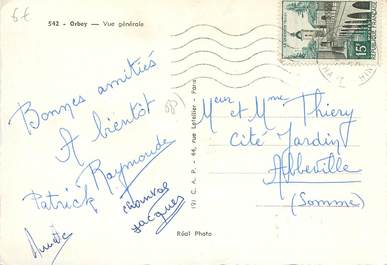 6€
542 - Orbey — Vue générale
Bonnes amitiés
A bientôt
Raymonde
Patrick
chantal
Jacques
191 C. A. P. - 44, rue Letellier - Paris
Réal Photo
15F
Meur et Mme Thiery
Cité Jardin
Abbeville
(Somme)